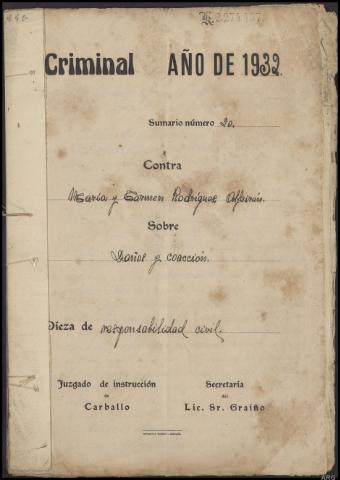 Criminal AÑO DE 1932.
Sumario número 20.
Contra
María y Carmen Rodríguez
Sobre
Daños y coacción.
Pieza de responsabilidad civil.
Juzgado de instrucción
de
Carballo
Secretaría
del
Lic. Sr. Graiño
ARG